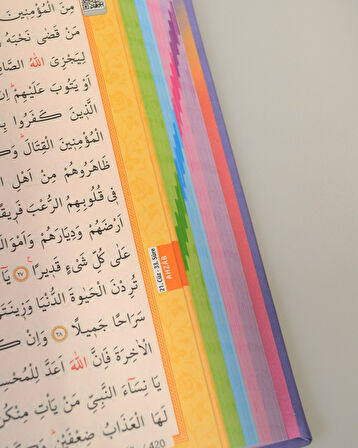 مِنَ الْمُؤْمِنٖينَ
مَنْ قَضٰى نَحْبَهُ
لِيَجْزِيَ اللّٰهُ الصَّا
اَوْ يَتُوبَ عَلَيْهِمْ اِنَّ
الَّذٖينَ كَفَرُوا
الْمُؤْمِنٖينَ الْقِتَالَ
ظَاهَرُوهُمْ مِنْ اَهْلِ
فٖى قُلُوبِهِمُ الرُّعْبَ فَرٖيقًا
اَرْضَهُمْ وَدِيَارَهُمْ وَاَمْوَالَ
عَلٰى كُلِّ شَيْءٍ قَدٖيرًا ٢٧ يَٓا
تُرِدْنَ الْحَيٰوةَ الدُّنْيَا وَزٖينَتَ
سَرَاحًا جَمٖيلًا ٢٨ وَاِنْ
الْاٰخِرَةَ فَاِنَّ اللّٰهَ اَعَدَّ لِلْمُحْسِ
يَا نِسَٓاءَ النَّبِيِّ مَنْ يَأْتِ مِنْكُنَّ
لَهَا الْعَذَابُ ضِعْفَيْنِ
21. Cüz - 33. Sûre
AHZÂB
420